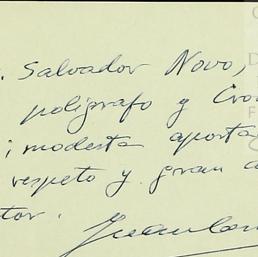 . Salvador Novo,
polígrafo y Cro
mi modesta aporta
respeto y gran a
tor.